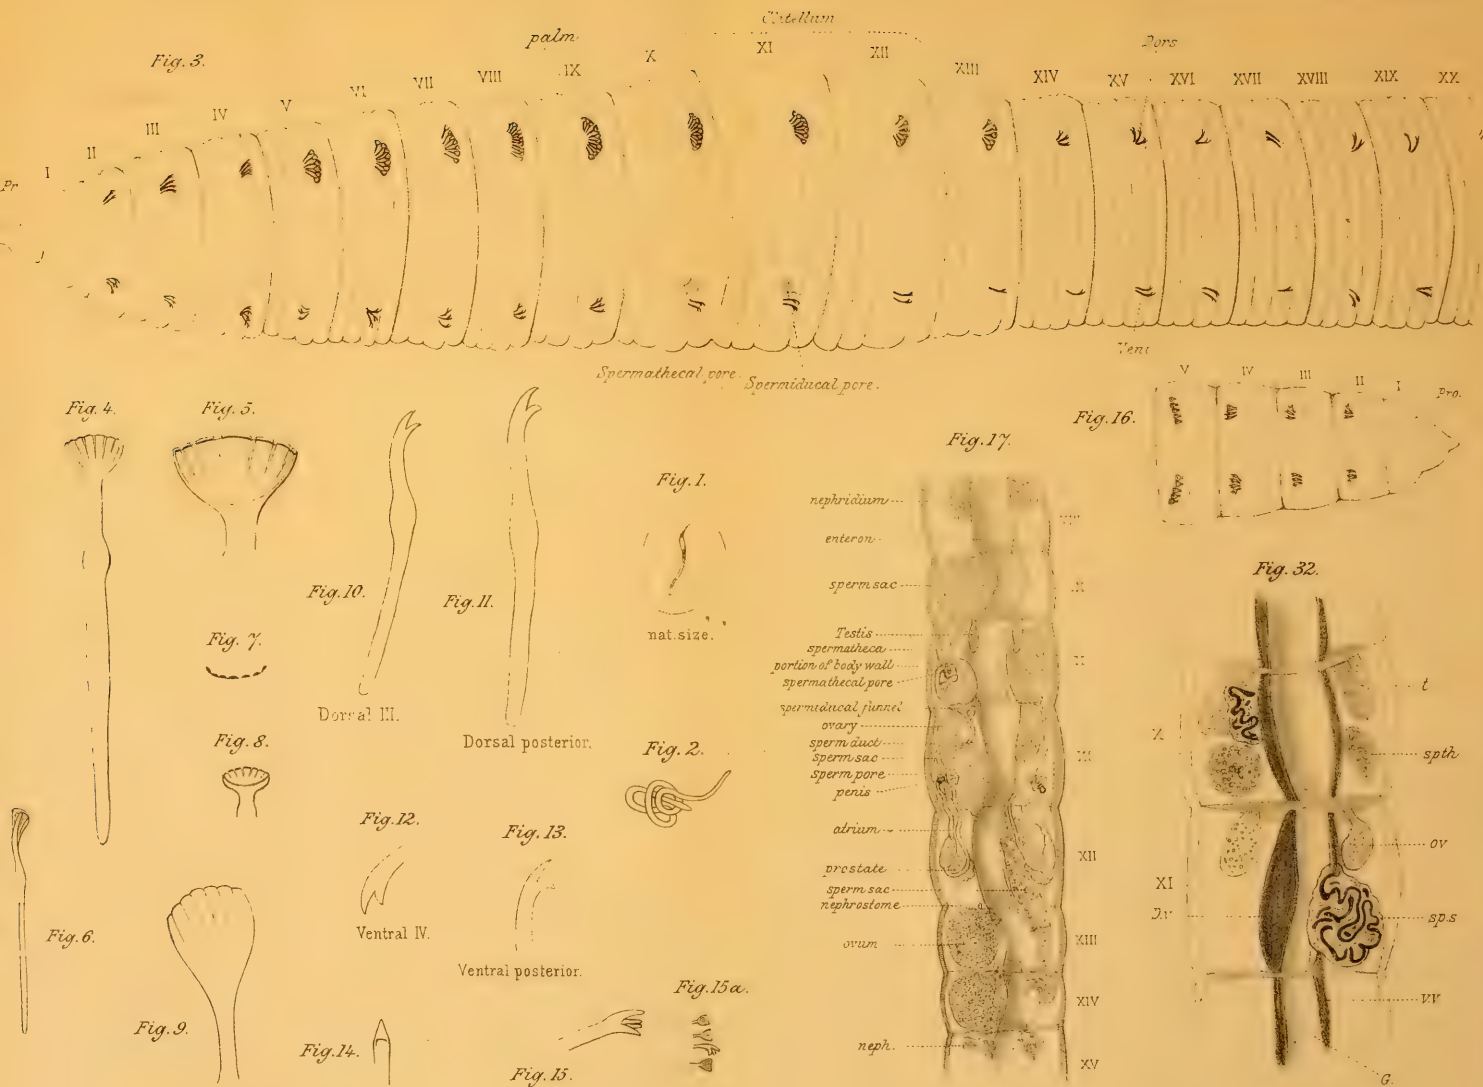 Fig. 3.
palm.
Clitellum
Dors
I
II
III
IV
V
VI
VII
VIII
IX
X
XI
XII
XIII
XIV
XV
XVI
XVII
XVIII
XIX
XX
Pr
Spermathecal pore.
Spermiducal pore.
Vent
Fig. 4.
Fig. 5.
Fig. 10.
Dorsal III.
Fig. 11.
Dorsal posterior.
Fig. 1.
nat. size.
Fig. 7.
Fig. 8.
Fig. 2.
Fig. 6.
Fig. 9.
Fig. 12.
Ventral IV.
Fig. 13.
Ventral posterior.
Fig. 14.
Fig. 15.
Fig. 15a.
Fig. 16.
V
IV
III
II
I
pro.
Fig. 17.
nephridium
enteron
sperm sac
Testis
spermatheca
portion of body wall
spermathecal pore
spermiducal funnel
ovary
sperm duct
sperm sac
sperm pore
penis
atrium
prostate
sperm sac
nephrostome
ovum
neph.
X
XI
XII
XIII
XIV
XV
Fig. 32.
X
XI
D.v
t
spth
ov
sp.s
v.v
G.